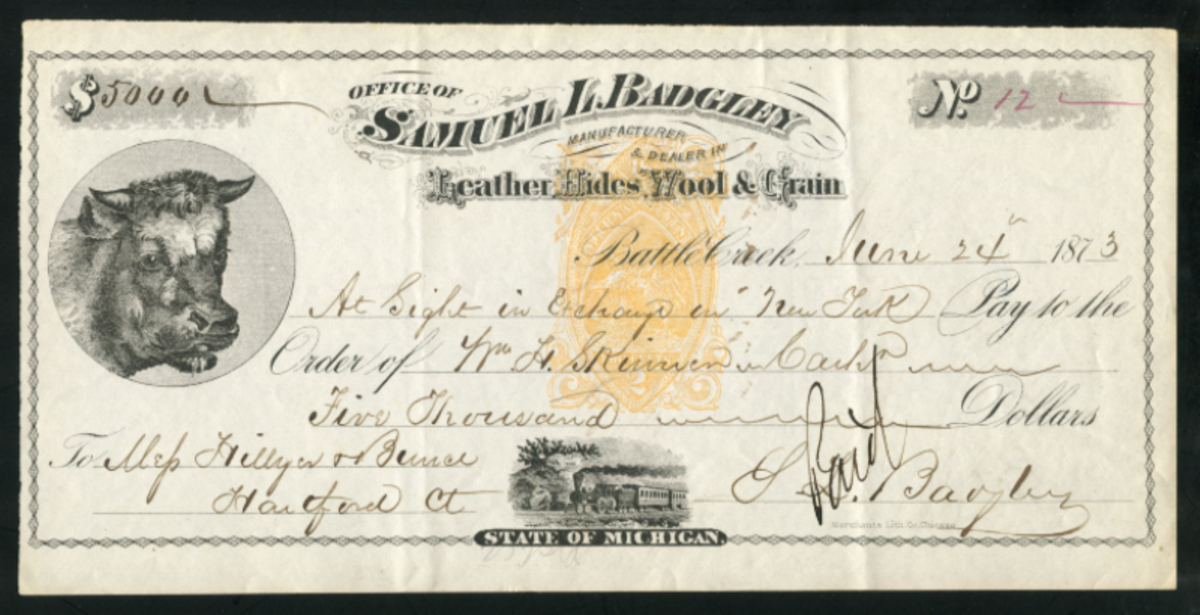 $5000
OFFICE OF
SAMUEL L. BADGLEY
MANUFACTURER
& DEALER IN
Leather, Hides, Wool & Grain
No. 12
Battle Creek, June 24th 1873
At Sight in Exchange in New York Pay to the
Order of Wm H. Skinner Cashr
Five Thousand Dollars
To Mess Hillyer & Bunce
Hartford Ct
S. L. Badgley
Paid
Merchants Lith. Co. Chicago
STATE OF MICHIGAN.